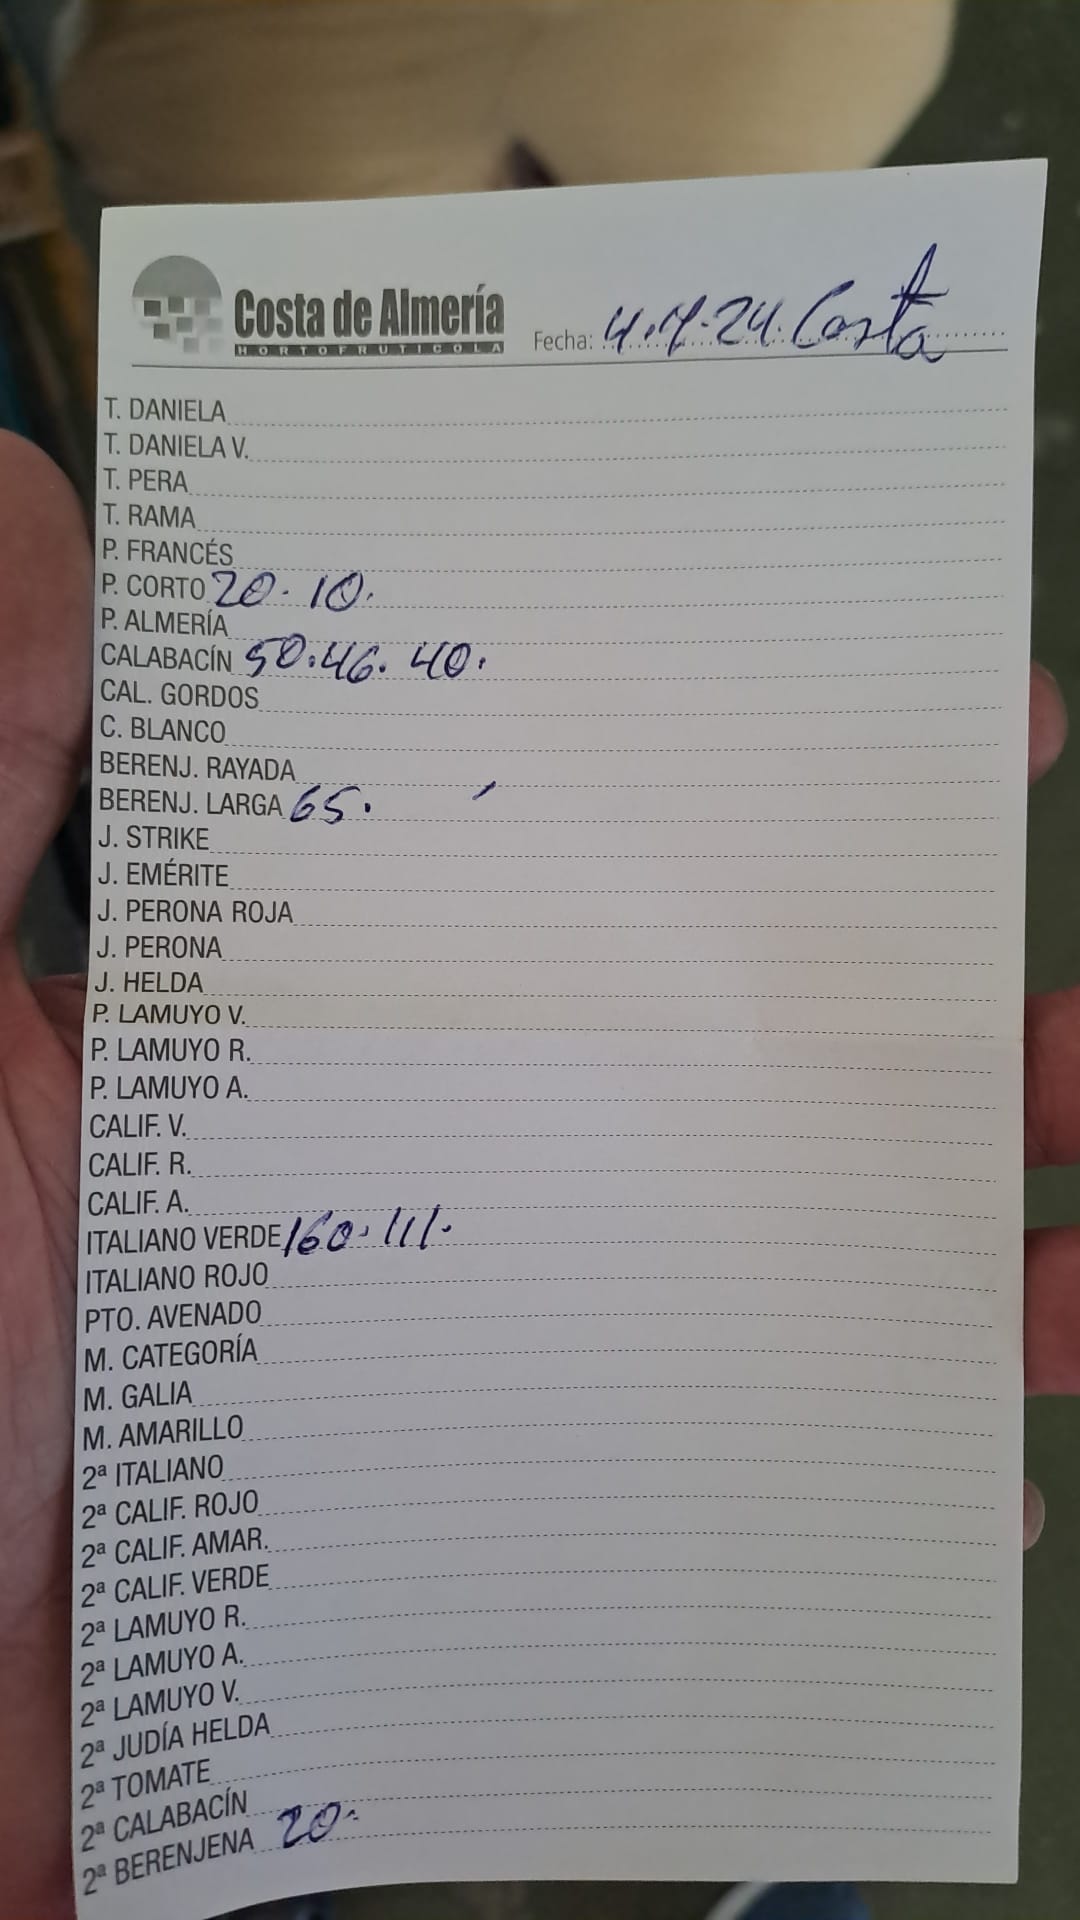 Costa de Almería
HORTOFRUTICOLA
Fecha: 4.4.24. Costa
T. DANIELA
T. DANIELA V.
T. PERA
T. RAMA
P. FRANCÉS
P. CORTO 20. 10.
P. ALMERÍA
CALABACÍN 50.46. 40.
CAL. GORDOS
C. BLANCO
BERENJ. RAYADA
BERENJ. LARGA 65.
J. STRIKE
J. EMÉRITE
J. PERONA ROJA
J. PERONA
J. HELDA
P. LAMUYO V.
P. LAMUYO R.
P. LAMUYO A.
CALIF. V.
CALIF. R.
CALIF. A.
ITALIANO VERDE 160. 111.
ITALIANO ROJO
PTO. AVENADO
M. CATEGORÍA
M. GALIA
M. AMARILLO
2ª ITALIANO
2ª CALIF. ROJO
2ª CALIF. AMAR.
2ª CALIF. VERDE
2ª LAMUYO R.
2ª LAMUYO A.
2ª LAMUYO V.
2ª JUDÍA HELDA
2ª TOMATE
2ª CALABACÍN
2ª BERENJENA 20.